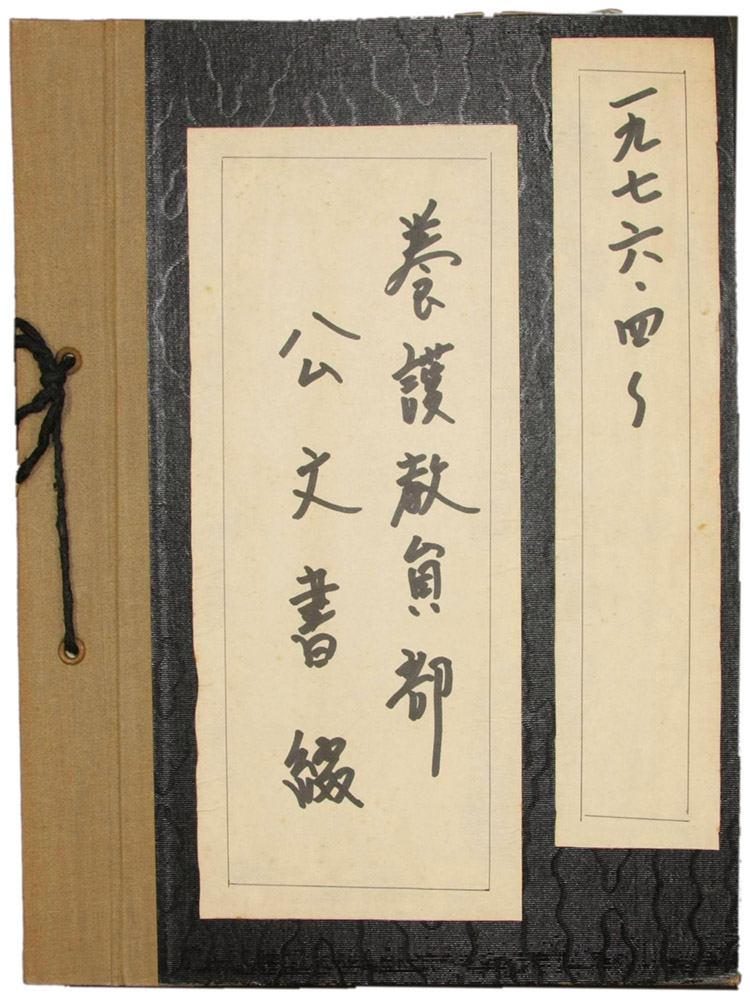 一九七六・四〜
養護教員部
公文書綴